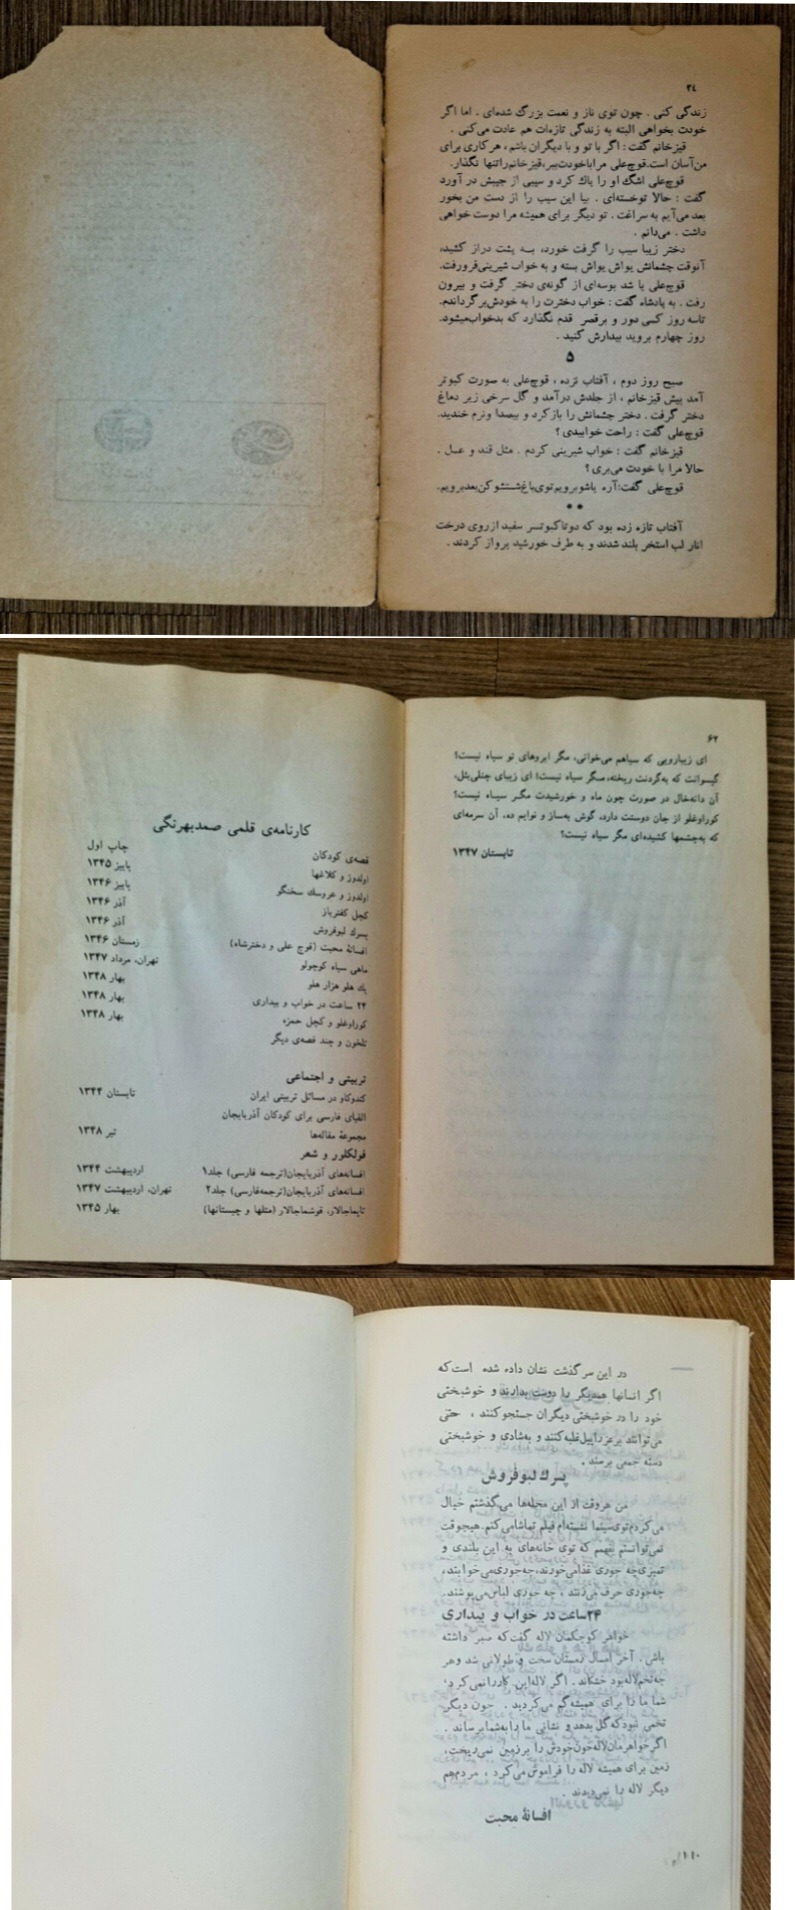 ۲۴
زندگی کنی . چون توی ناز و نعمت بزرگ شده‌ای . اما اگر
خودت بخواهی البته به زندگی تازه‌ات هم عادت می‌کنی .
قیزخانم گفت : اگر با تو و با دیگران باشم ، هر کاری برای
من آسان است. قوچ‌علی مرا با خودت ببر، قیزخانم را تنها نگذار.
قوچ‌علی اشگ او را پاك کرد و سیبی از جیبش در آورد
گفت : حالا تو خسته‌ای . بیا این سیب را از دست من بخور
بعد می‌آیم به سراغت . تو دیگر برای همیشه مرا دوست خواهی
داشت . می‌دانم .
دختر زیبا سیب را گرفت خورد، بـه پشت دراز کشید،
آنوقت چشمانش یواش یواش بسته و به خواب شیرینی فرورفت.
قوچ‌علی پا شد بوسه‌ای از گونه‌ی دختر گرفت و بیرون
رفت . به پادشاه گفت : خواب دخترت را به خودش برگرداندم.
تا سه روز کسی دور و بر قصر قدم نگذارد که بدخواب میشود.
روز چهارم بروید بیدارش کنید .
۵
صبح روز دوم ، آفتاب نزده ، قوچ‌علی به صورت کبوتر
آمد پیش قیزخانم ، از جلدش درآمد و گل سرخی زیر دماغ
دختر گرفت . دختر چشمانش را باز کرد و بیصدا و نرم خندید.
قوچ‌علی گفت : راحت خوابیدی ؟
قیزخانم گفت : خواب شیرینی کردم . مثل قند و عسل .
حالا مرا با خودت می‌بری ؟
قوچ‌علی گفت: آره پاشو برویم توی باغ شستشو کن بعد برویم.
**
آفتاب تازه زده بود که دوتا کبوتـر سفید از روی درخت
انار لب استخر بلند شدند و به طرف خورشید پرواز کردند .
۶۲
ای زیبارویی که سیاهم می‌خوانی، مگر ابروهای تو سیاه نیست؟
گیسوانت که به‌گردنت ریخته، مگر سیاه نیست؟ ای زیبای چنلی‌بئل،
آن دانه‌خال در صورت چون ماه و خورشیدت مگـر سیـاه نیست؟
کوراوغلو از جان دوستت دارد، گوش به‌ساز و نوایم ده، آن سرمه‌ای
که به‌چشمها کشیده‌ای مگر سیاه نیست؟
تابستان ۱۳۴۷
کارنامه‌ی قلمی صمد بهرنگی
قصه‌ی کودکان چاپ اول
اولدوز و کلاغها پاییز ۱۳۴۵
اولدوز و عروسك سخنگو پاییز ۱۳۴۶
کچل کفترباز آذر ۱۳۴۶
پسرك لبوفروش آذر ۱۳۴۶
افسانهٔ محبت (قوچ علی و دخترشاه) زمستان ۱۳۴۶
ماهی سیاه کوچولو تهران، مرداد ۱۳۴۷
یك هلو هزار هلو بهار ۱۳۴۸
۲۴ ساعت در خواب و بیداری بهار ۱۳۴۸
کوراوغلو و کچل حمزه بهار ۱۳۴۸
تلخون و چند قصه‌ی دیگر
تربیتی و اجتماعی
کندوکاو در مسائل تربیتی ایران تابستان ۱۳۴۴
الفبای فارسی برای کودکان آذربایجان
مجموعهٔ مقاله‌ها تیر ۱۳۴۸
فولکلور و شعر
افسانه‌های آذربایجان(ترجمه فارسی) جلد۱ اردیبهشت ۱۳۴۴
افسانه‌های آذربایجان(ترجمه‌فارسی) جلد۲ تهران، اردیبهشت ۱۳۴۷
تاپماجالار، قوشماجالار (مثلها و چیستانها) بهار ۱۳۴۵
در این سرگذشت نشان داده شده است که
اگر انسانها همدیگر را دوست بدارند و خوشبختی
خود را در خوشبختی دیگران جستجو کنند ، حتی
می‌توانند بر عزراییل غلبه کنند و به‌شادی و خوشبختی
دسته جمعی برسند .
پسرك لبوفروش
من هروقت از این محله‌ها می‌گذشتم خیال
می‌کردم توی سینما نشسته‌ام فیلم تماشا می‌کنم. هیچوقت
نمی‌توانستم بفهمم که توی خانه‌های به این بلندی و
تمیزی چه جوری غذا می‌خورند، چه جوری می‌خوابند،
چه جوری حرف می‌زنند ، چه جوری لباس می‌پوشند.
۲۴ساعت در خواب و بیداری
خواهر کوچکمان لاله گفت که صبر داشته
باش . آخر امسال زمستان سخت و طولانی شد و هر
چه تخم لاله بود خشکاند . اگر لاله این کار را نمی‌کرد ،
شما ما را برای همیشه گم می‌کردید . چون دیگر
تخمی نبود که گل بدهد و نشانی ما را به‌شما برساند .
اگر خواهرمان لاله خون خودش را بر زمین نمی‌ریخت،
زمین برای همیشه لاله را فراموش می‌کرد ، مردم هم
دیگر لاله را نمی‌دیدند .
افسانهٔ محبت
۱۱۰